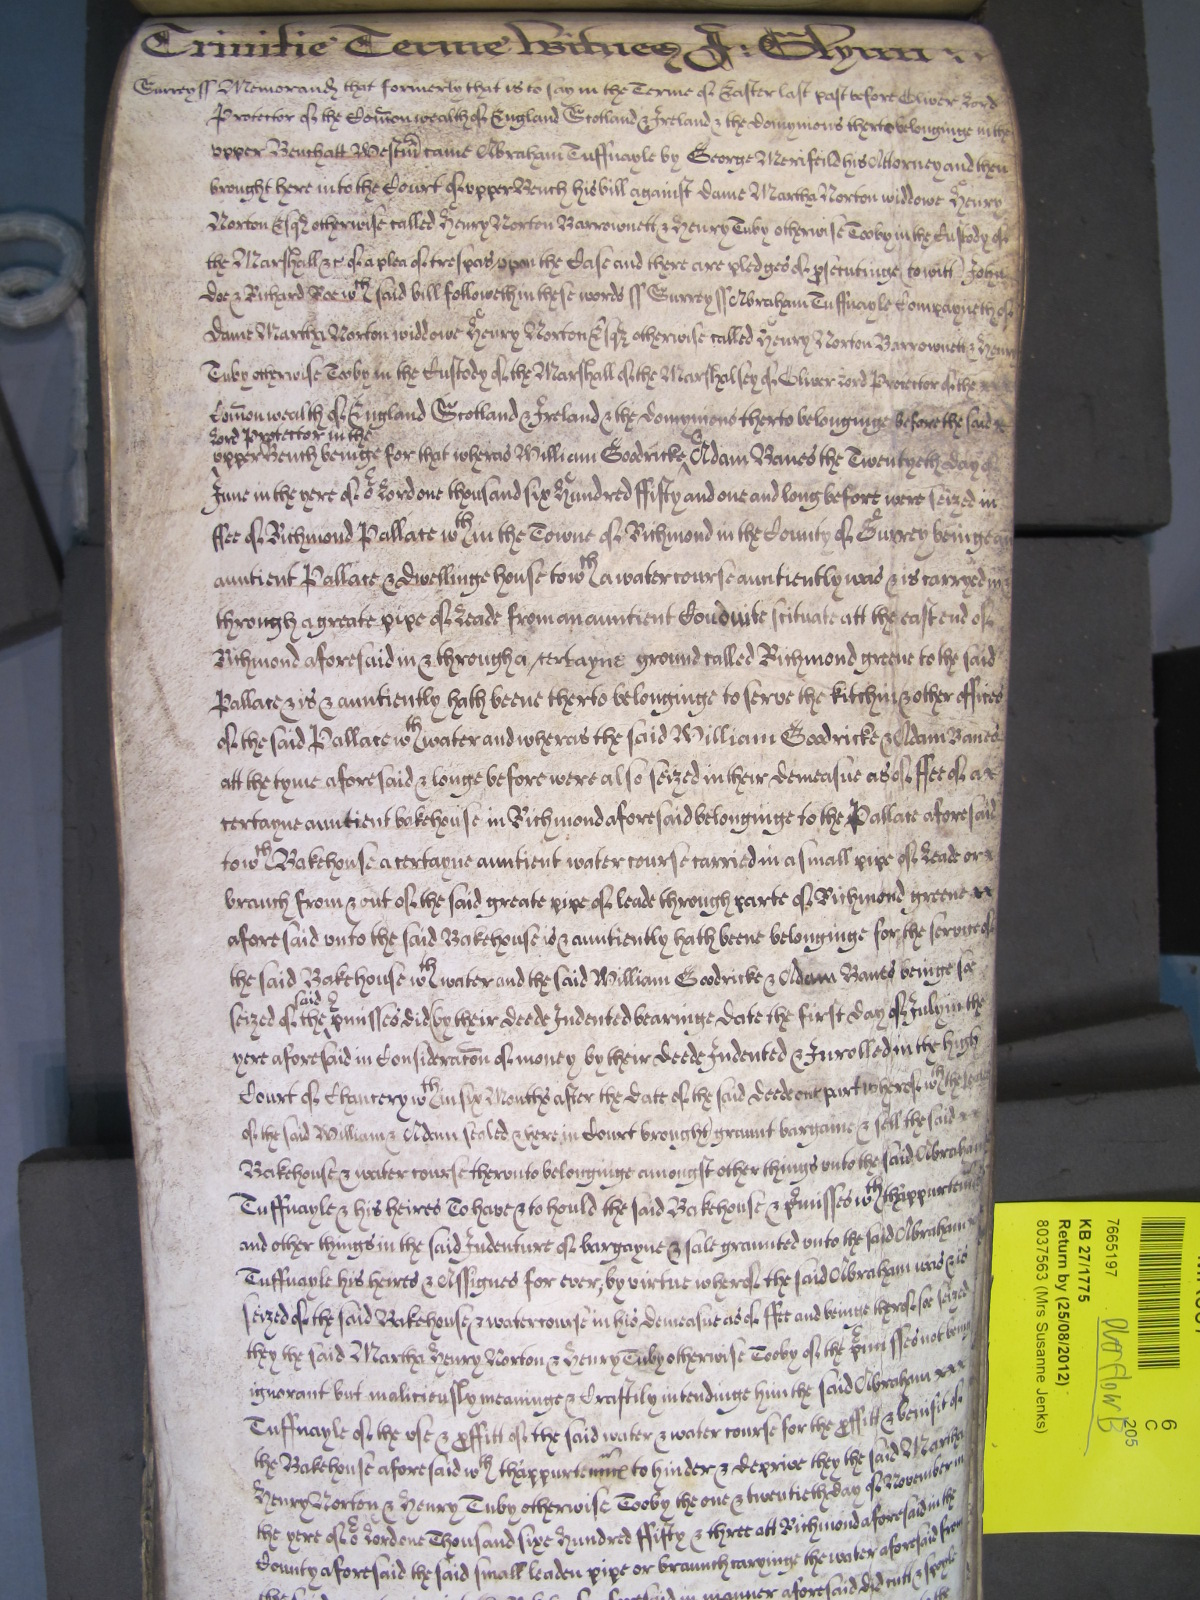 Trinitie Terme Witnes J: Glynn
Surrey ss Memorand that formerly that is to say in the Terme of Easter last past before Oliver Lord
Protector of the Comon wealth of England Scotland & Ireland & the Dominions therto belonginge in the
upper Bench att Westm came Abraham Tuffnayle by George Merifeild his Attorney and then
brought here into the Court of upper Bench his bill against Dame Martha Norton widdowe Henry
Norton Esqr otherwise called Henry Norton Barrownett & Henry Tuby otherwise Tooby in the Custody of
the Marshall &c of a plea of trespas upon the Case and there are pledges of prsecutinge to witt John
Doe & Richard Roe wth said bill followeth in these words ss Surrey ss Abraham Tuffnayle Compayneth of
Dame Martha Norton widdowe Henry Norton Esqr otherwise called Henry Norton Barrownett & Henry
Tuby otherwise Tooby in the Custody of the Marshall of the Marshalsey of Oliver Lord Protector of the
Comon wealth of England Scotland & Ireland & the Domynions therto belonginge before the said
Lord Protector in the
upper Bench beinge for that wheras William Goodricke & Adam Banes the Twentyeth day of
June in the yere of or Lord one thousand six Hundred ffifty and one and long before were seized in
ffee of Richmond Pallace wthin the Towne of Richmond in the County of Surrey beinge an
auntient Pallace & Dwellinge house to wth a water course auntiently was & is carryed in &
through a greate pipe of Leade from an auntient Conduite scituate att the east end of
Richmond aforesaid in & through a certayne ground called Richmond greene to the said
Pallace & is & auntiently hath beene therto belonginge to serve the kitchin & other offices
of the said Pallace wth water and wheras the said William Goodricke & Adam Banes
att the tyme aforesaid & longe before were also seized in their demeasne as of ffee of a
certayne auntient bakehouse in Richmond aforesaid belonginge to the Pallace aforesaid
to wth Bakehouse a certayne auntient water course carried in a small pipe of Leade or
branch from & out of the said greate pipe of leade through parte of Richmond greene
aforesaid unto the said Bakehouse is & auntiently hath beene belonginge for the service of
the said Bakehouse wth water and the said William Goodricke & Adam Banes beinge soe
said
seized of the prmisses did by their deede Indented bearinge date the first day of July in the
yere aforesaid in Consideracon of money by their deede Indented & Inrolled in the high
Court of Chancery wthin six Months after the date of the said deede one part wherof wth the seales
of the said William & Adam sealed & here in Court brought graunt bargaine & sell the said
Bakehouse & water course therunto belonginge amongst other things unto the said Abraham
Tuffnayle & his heires To have & to hould the said Bakehouse & prmisses wth thappurtennces
and other things in the said Indenture of bargayne & sale graunted unto the said Abraham
Tuffnayle his heires & Assignes for ever, by virtue wherof the said Abraham was & is
seized of the said Bakehouse & water course in his demeasne as of ffee and beinge therof soe seized
they the said Martha Henry Norton & Henry Tuby otherwise Tooby of the prmisses not being
ignorant but maliciously meaninge & Craftily intendinge him the said Abraham
Tuffnayle of the use & proffitt of the said water & water course for the proffitt & benifit of
the Bakehouse aforesaid wth thappurtennc to hinder & deprive they the said Martha
Henry Norton & Henry Tuby otherwise Tooby the one & twentieth day of November in
the yere of or Lord one Thousand sixe Hundred ffifty & three att Richmond aforesaid in the
County aforesaid the said small leaden pipe or braunch carryinge the water aforesaid from
the said aforesaid in manner aforesaid did cutt & spoyle
7665197
KB 27/1775
Return by (25/08/2012)
8037563 (Mrs Susanne Jenks)
Overflow B
6
C
205